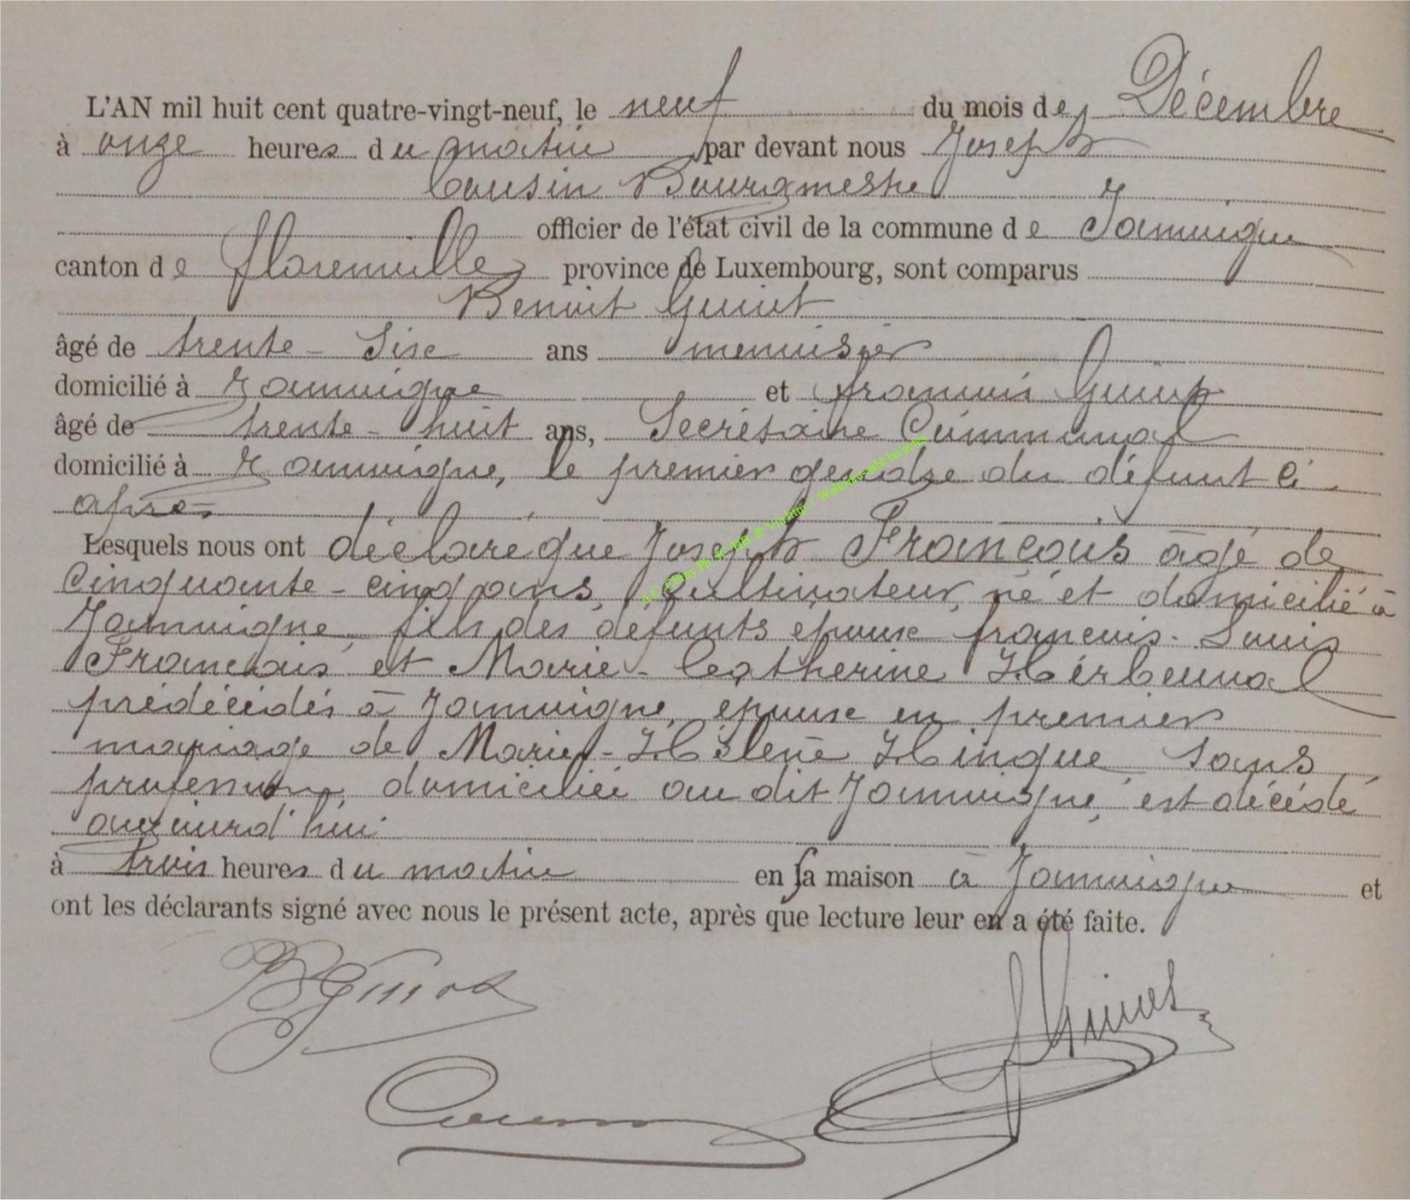 L'AN mil huit cent quatre-vingt-neuf, le neuf du mois de Décembre
à onze heures du matin par devant nous Joseph
Cousin Bourgmestre
officier de l'état civil de la commune de Jamoigne
canton de florenville province de Luxembourg, sont comparus
Benoit Guiot
âgé de trente-six ans menuisier
domicilié à Jamoigne et françois Guiot
âgé de trente-huit ans, Secrétaire Communal
domicilié à Jamoigne, le premier gendre du défunt ci
après
Lesquels nous ont déclaré que Joseph François âgé de
cinquante-cinq ans, cultivateur, né et domicilié à
Jamoigne, fils des défunts époux françois-Louis
François et Marie-Catherine Herbeuval
prédécédés à Jamoigne, époux en premier
mariage de Marie-Hélène Hinque, sans
profession, domiciliée au dit Jamoigne, est décédé
aujourd'hui
à trois heures du matin en sa maison à Jamoigne et
ont les déclarants signé avec nous le présent acte, après que lecture leur en a été faite.
B Guiot
f Guiot
Cousin